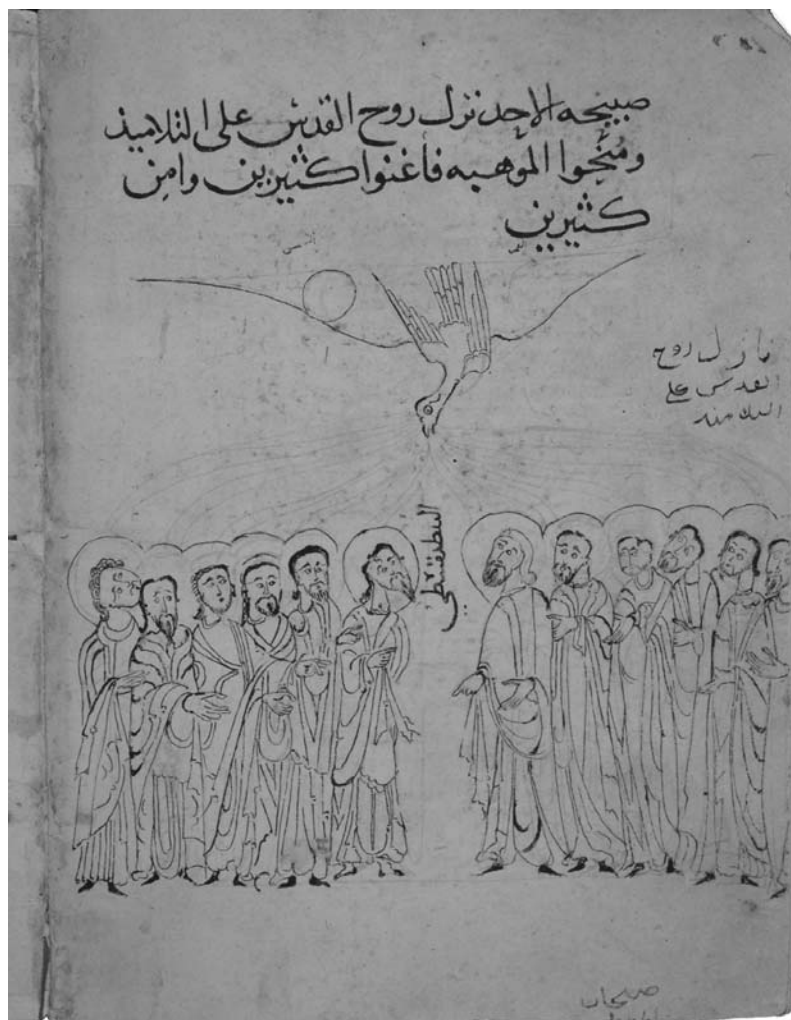 صبيحه الاحد نزل روح القدس على التلاميذ
ومُنحوا الموهبه فاغنوا كثيرين وامن
كثيرين
نازل روح
القدس على
التلاميذ
البنطيقسطي